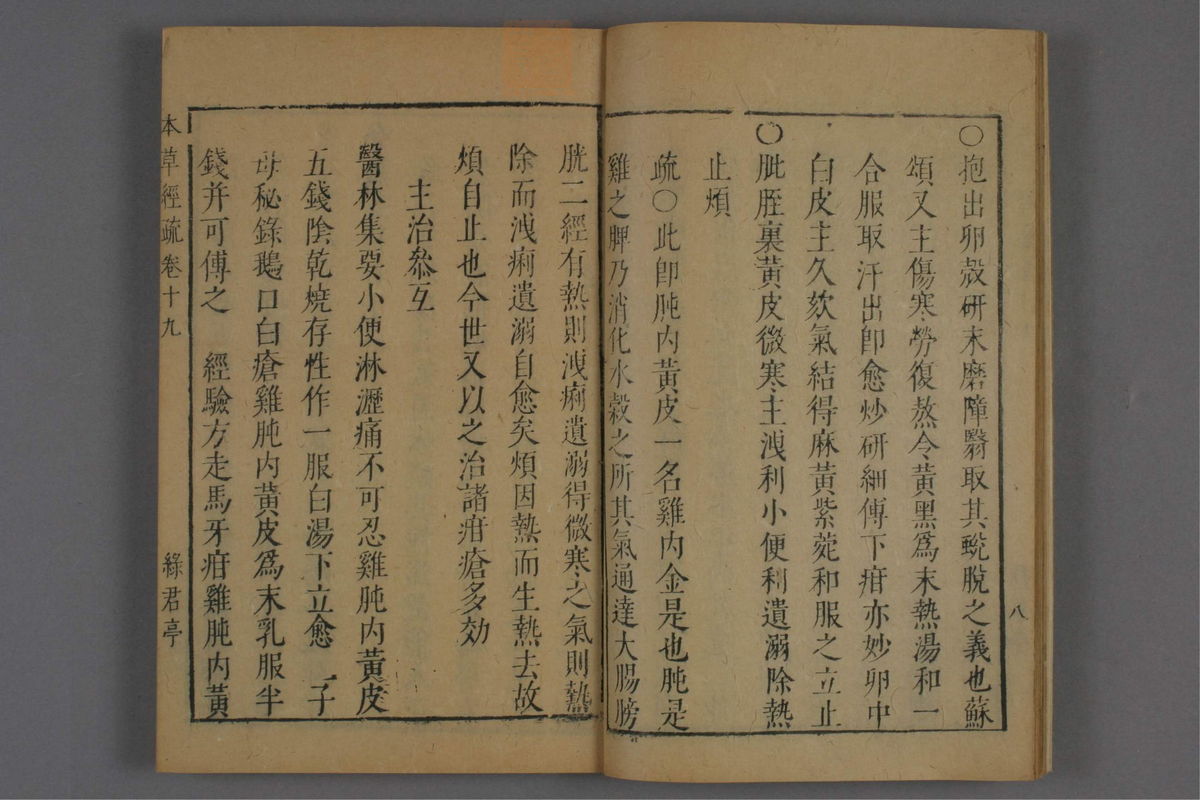 ○抱出卵殼研末磨障翳取其蛻脫之義也蘇
頌又主傷寒勞復熬令黃黑爲末熱湯和一
合服取汗出卽愈炒研細傅下疳亦妙卵中
白皮主久欬氣結得麻黃紫菀和服之立止
○肶胵裏黃皮微寒主洩利小便利遺溺除熱
止煩
疏○此卽肫內黃皮一名雞內金是也肫是
雞之脾乃消化水穀之所其氣通達大腸膀
八
胱二經有熱則洩痢遺溺得微寒之氣則熱
除而洩痢遺溺自愈矣煩因熱而生熱去故
煩自止也今世又以之治諸疳瘡多効
主治叅互
醫林集要小便淋瀝痛不可忍雞肫內黃皮
五錢陰乾燒存性作一服白湯下立愈 子
母秘錄鵝口白瘡雞肫內黃皮爲末乳服半
錢并可傅之 經驗方走馬牙疳雞肫內黃
本草經疏卷十九 綠君亭